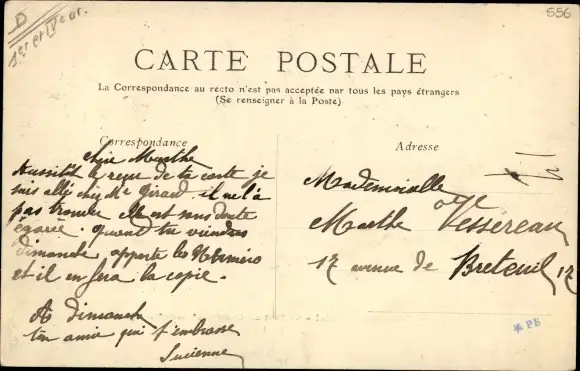 D
1er et IVe ar.
556
CARTE POSTALE
La Correspondance au recto n'est pas acceptée par tous les pays étrangers
(Se renseigner à la Poste)
Correspondance
Adresse
Chère Marthe
Aussitôt le reçu de ta carte je
suis allé chez Mr Girard. il ne l'a
pas trouvée elle est sans doute
égarée. quand tu viendras
dimanche, apporte les Numéro
et il en fera la copie.
A dimanche
ton amie qui t'embrasse
Lucienne
Mademoiselle
Marthe Vessereau
17 avenue de Breteuil 17
*PB